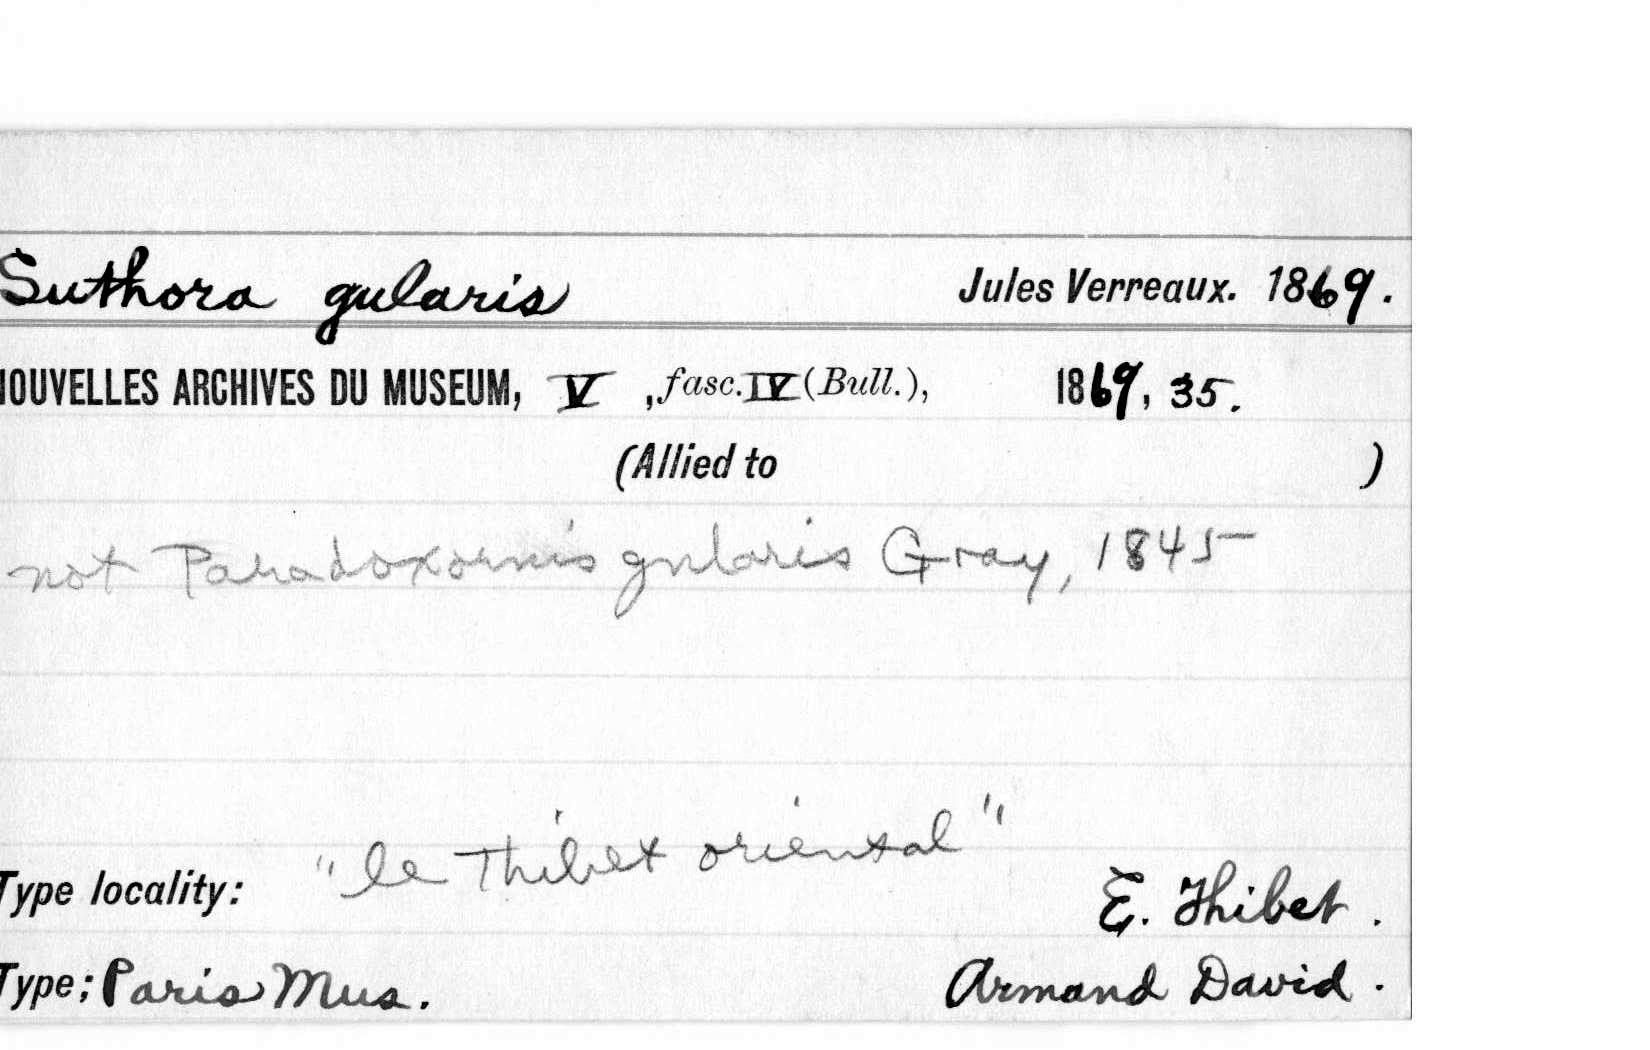 Suthora gularis Jules Verreaux. 1869.
NOUVELLES ARCHIVES DU MUSEUM, V , fasc. IV (Bull.), 1869, 35.
(Allied to )
not Paradoxornis gularis Gray, 1845
"le Thibet oriental"
Type locality: E. Thibet.
Type; Paris Mus. Armand David.